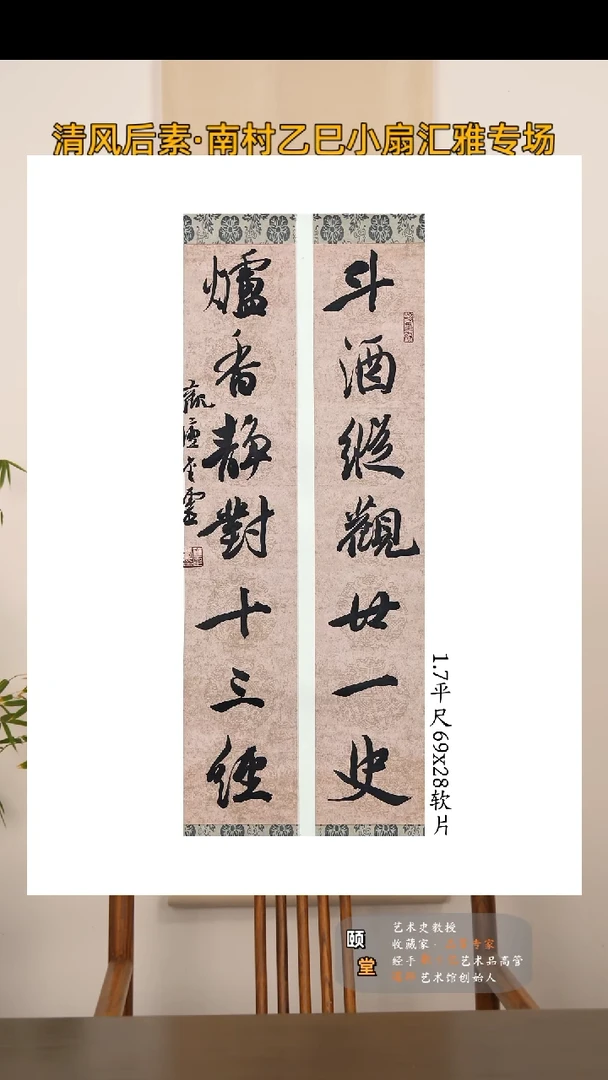 清风后素·南村乙巳小扇汇雅专场
斗酒縱觀廿一史
爐香静對十三經
1.7平尺69x28软片
颐堂
艺术史教授
收藏家·
经手 艺术品高管
艺术馆创始人